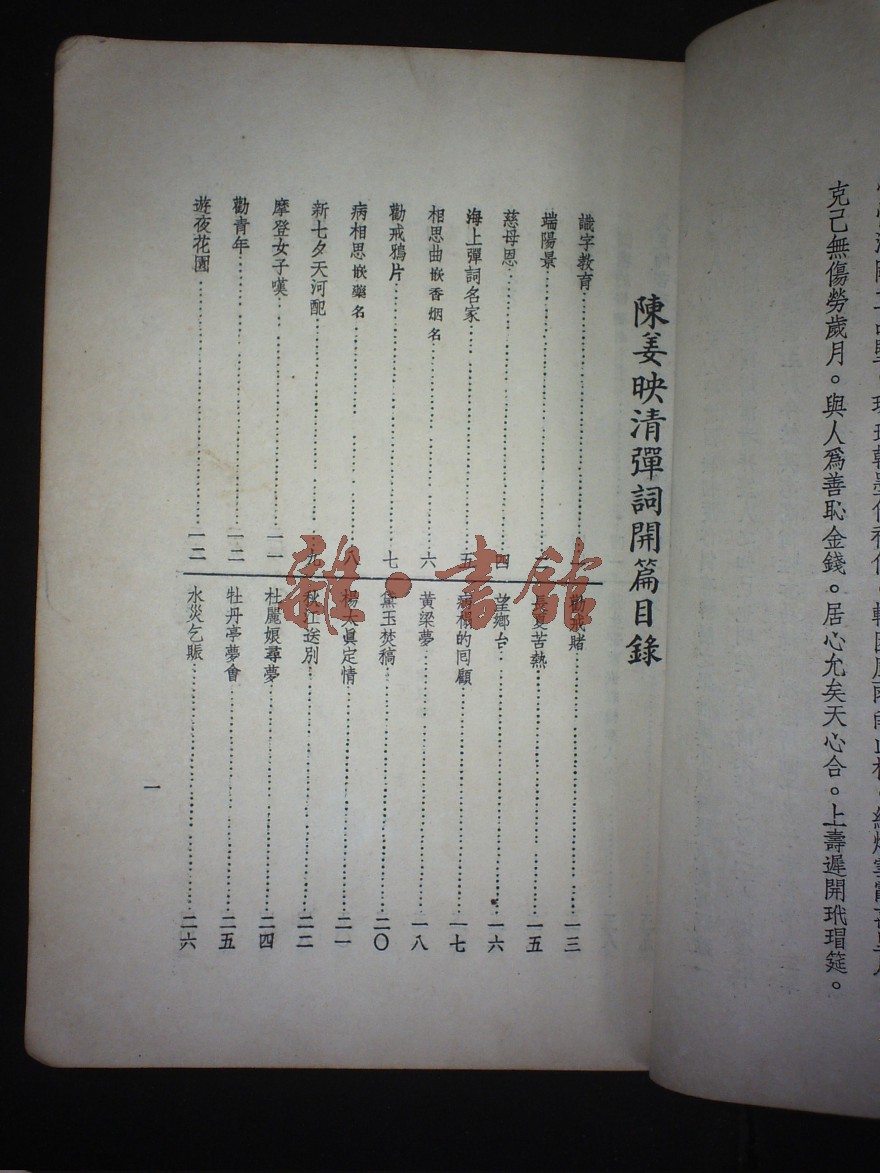 克己無傷勞歲月。與人爲善恥金錢。居心允矣天心合。上壽遲開玳瑁筵。
陳姜映清彈詞開篇目錄
識字教育
端陽景
慈母恩 四
海上彈詞名家 五
相思曲嵌香烟名 六
勸戒鴉片 七
病相思嵌藥名 八
新七夕天河配 九
摩登女子嘆 一一
勸青年 一二
遊夜花園 一二
勸戒賭 一三
長夏苦熱 一五
望鄉台 一六
病榻的回顧 一七
黃梁夢 一八
黛玉焚稿 二〇
楊太眞定情 二一
秋江送別 二二
杜麗娘尋夢 二四
牡丹亭夢會 二五
水災乞賑 二六
一
雜·書館